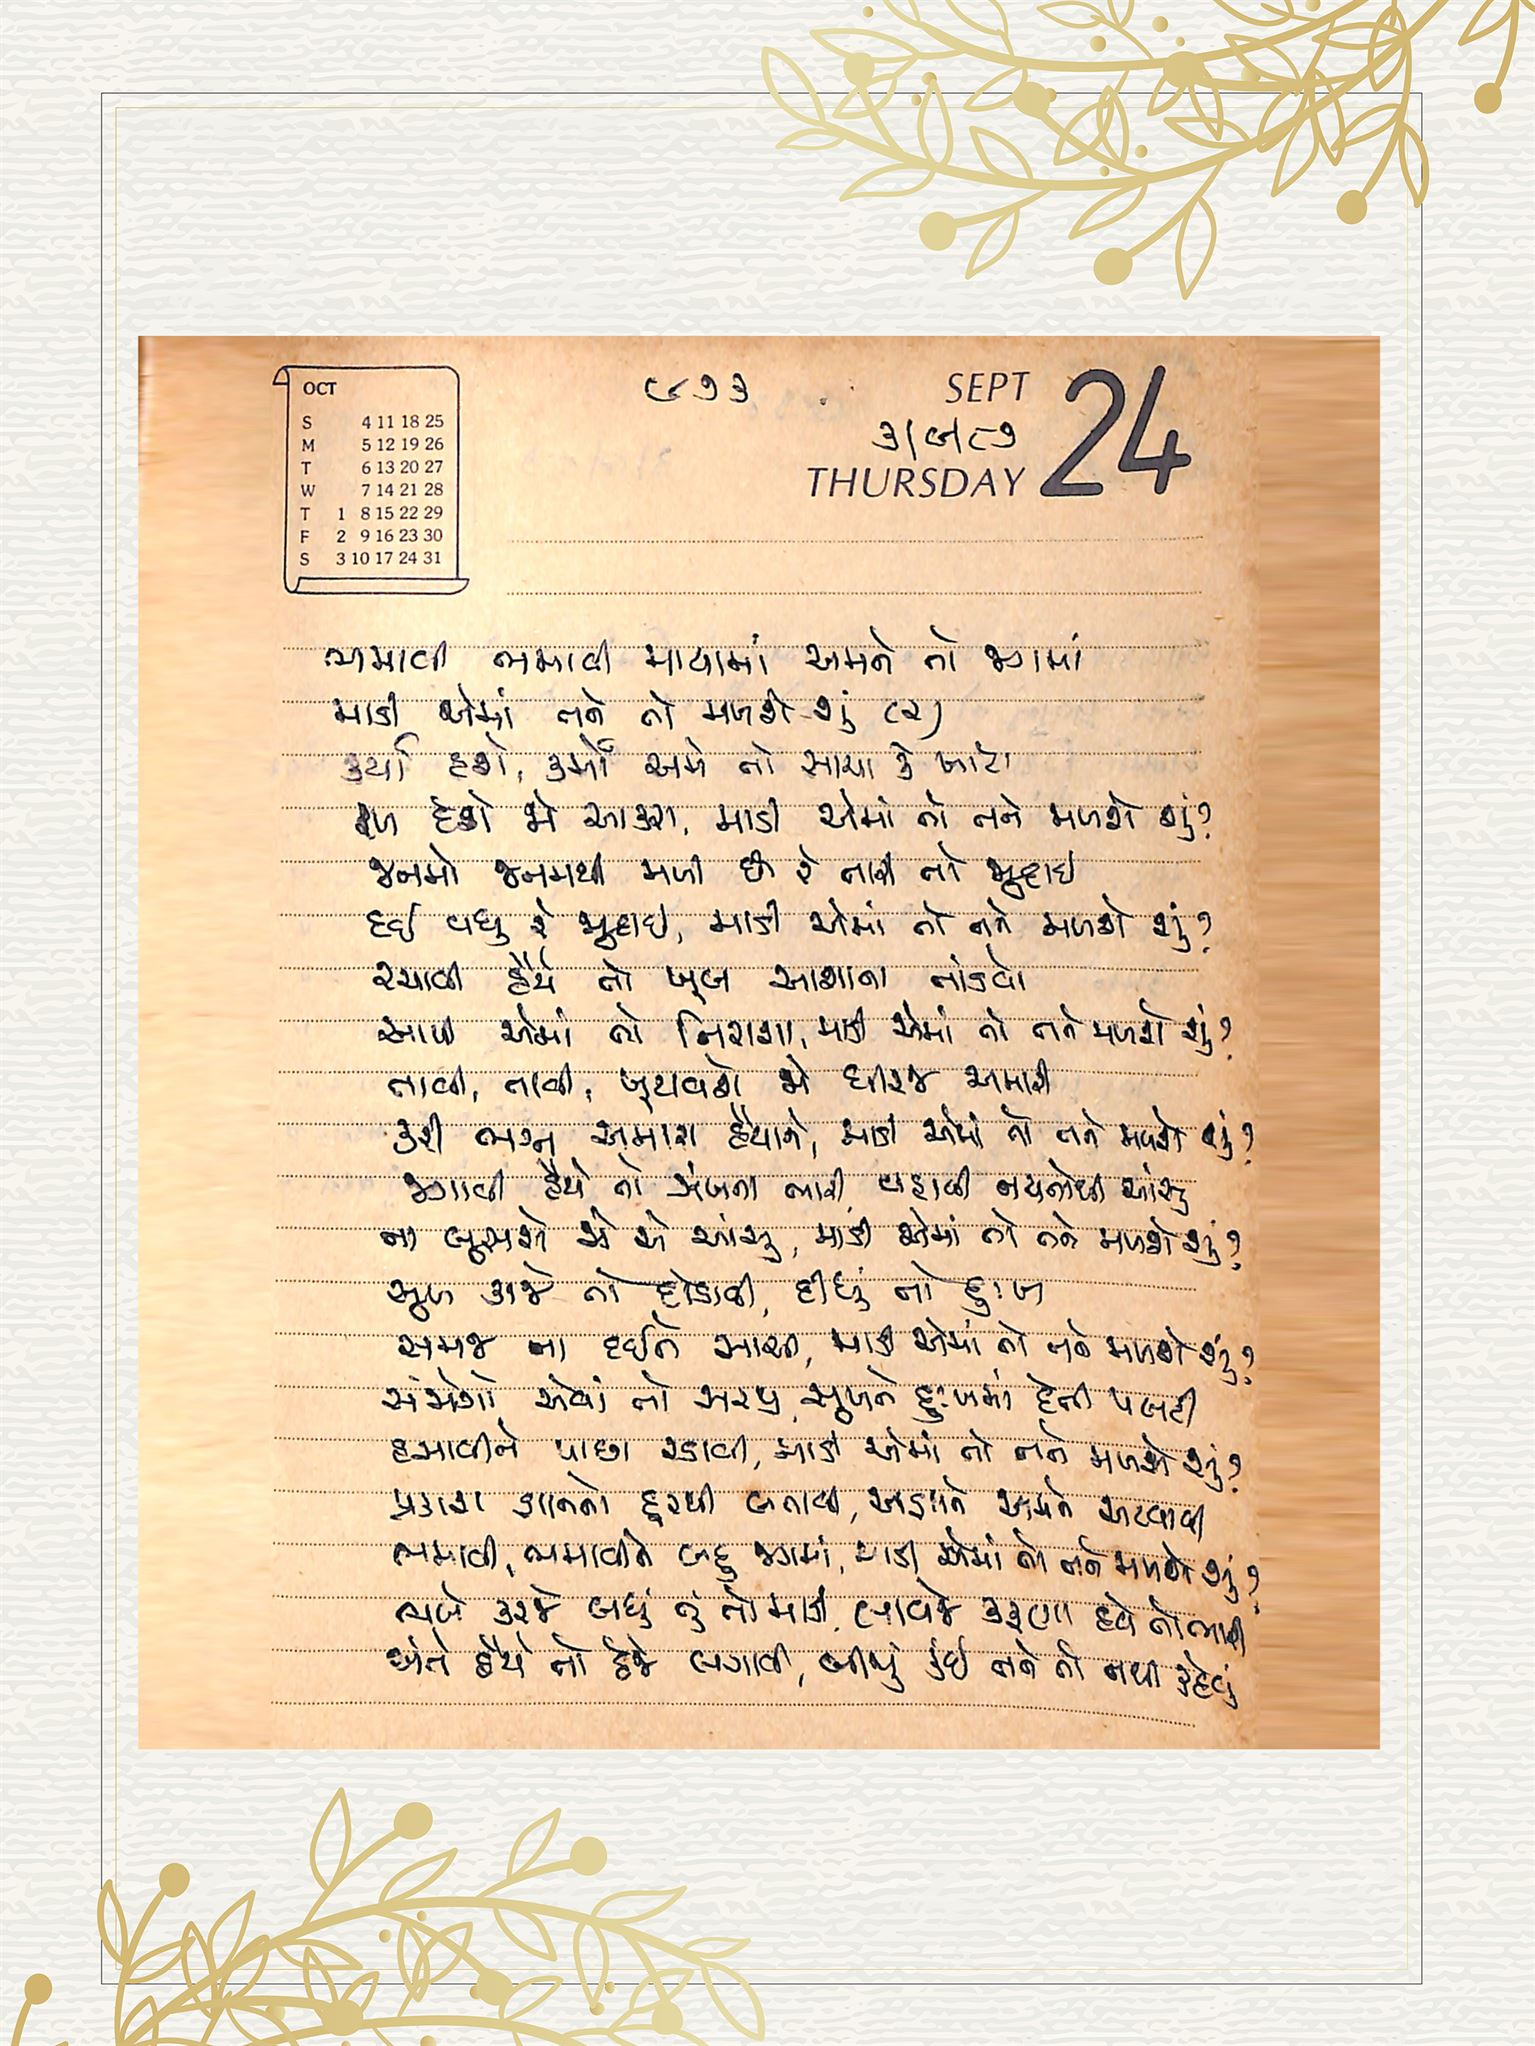 OCT
S 4 11 18 25
M 5 12 19 26
T 6 13 20 27
W 7 14 21 28
T 1 8 15 22 29
F 2 9 16 23 30
S 3 10 17 24 31
૯૭૩
SEPT 24
૩/૯/૮૭
THURSDAY
ભમાવી ભમાવી માયામાં અમને તો જગમાં
માડી એમાં તને તો મળશે શું (૨)
કર્યા હશે, કર્મો અમે તો સાચા કે ખોટા
ફળ દેશે જો આકરા, માડી એમાં તો તને મળશે શું?
જનમો જનમથી મળી છે રે તારી તો જુદાઈ
દઈ વધુ રે જુદાઈ, માડી એમાં તો તને મળશે શું?
રચાવી હૈયે તો ખૂબ આશાના તાંડવો
આપી એમાં તો નિરાશા, માડી એમાં તો તને મળશે શું?
તાવી, તાવી, ખૂટવશે જો ધીરજ અમારી
કરી ભગ્ન અમારા હૈયાને, માડી એમાં તો તને મળશે શું?
જગાવી હૈયે તો ઝંખના ભારી, વહાવી નયનોથી આંસુ
ના લૂછાશે જો એ આંસુ, માડી એમાં તો તને મળશે શું?
સુખ કાજે તો દોડાવી, દીધું તો દુઃખ
સમજ ના દઈને સાચી, માડી એમાં તો તને મળશે શું?
સંજોગો એવાં તો સરજી, સુખને દુઃખમાં દેતી પલટી
હસાવીને પાછા રડાવી, માડી એમાં તો તને મળશે શું?
પ્રકાશ જ્ઞાનનો દૂરથી બતાવી, અજ્ઞાને અમને અટવાવી
ભમાવી, ભમાવીને બહુ જગમાં, માડી એમાં તો તને મળશે શું?
ભલે કરજે બધું તું તો માડી, લાવજે કરુણા હવે તો ભારી
અંતે હૈયે તો દેજે લગાવી, બીજું કંઈ તને તો નથી કહેવું